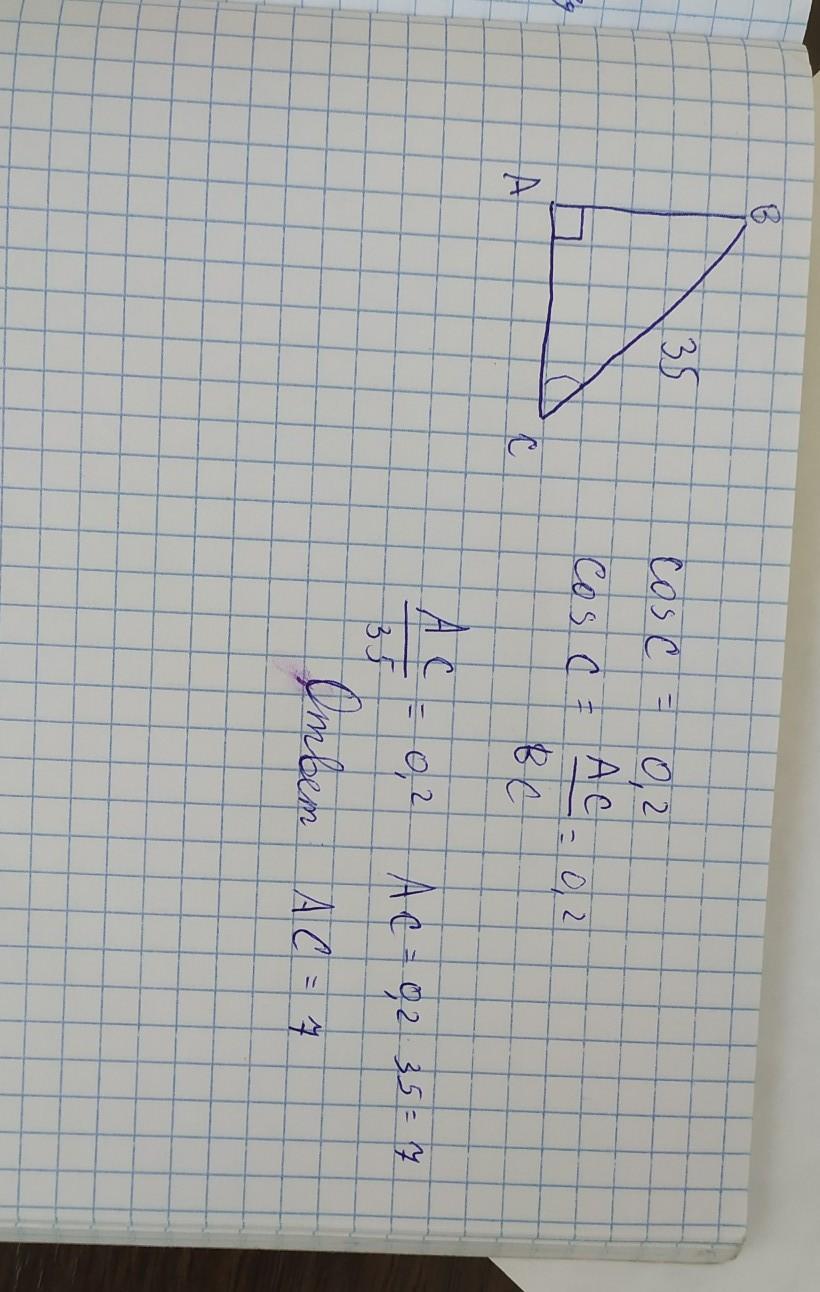 B
35
A
C
cos C = 0,2
cos C = AC/BC = 0,2
AC/35 = 0,2 AC = 0,2 · 35 = 7
Ответ: AC = 7